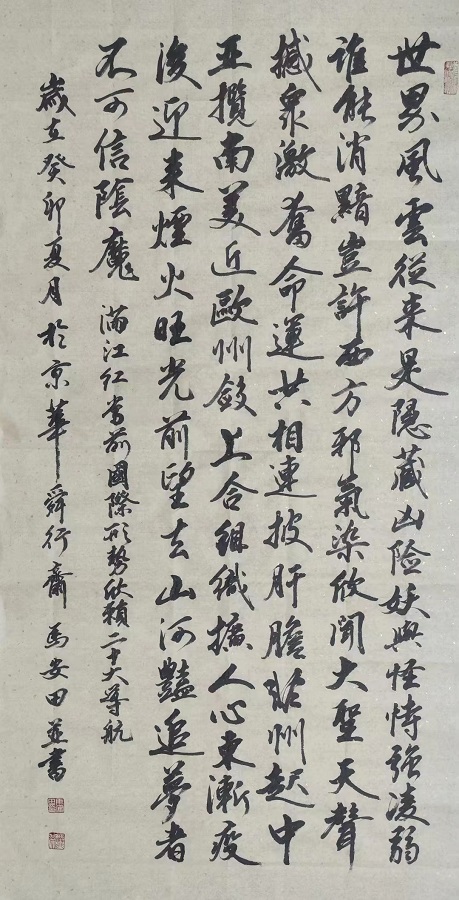 世界風雲從来是隱藏凶险妖與怪恃强凌弱
誰能消黯豈許西方邪氣染欣聞大聖天聲
撼衆激奮命運共相連披肝膽非州起中
亚攬南美近歐州斂上合組織擴人心東漸疫
後迎来煙火旺光前望去山河豔追夢者
不可信陰魔 滿江红 当前國際形勢欣賴二十大導航
歲在癸卯夏月於京華舜行齋 馬安田並書